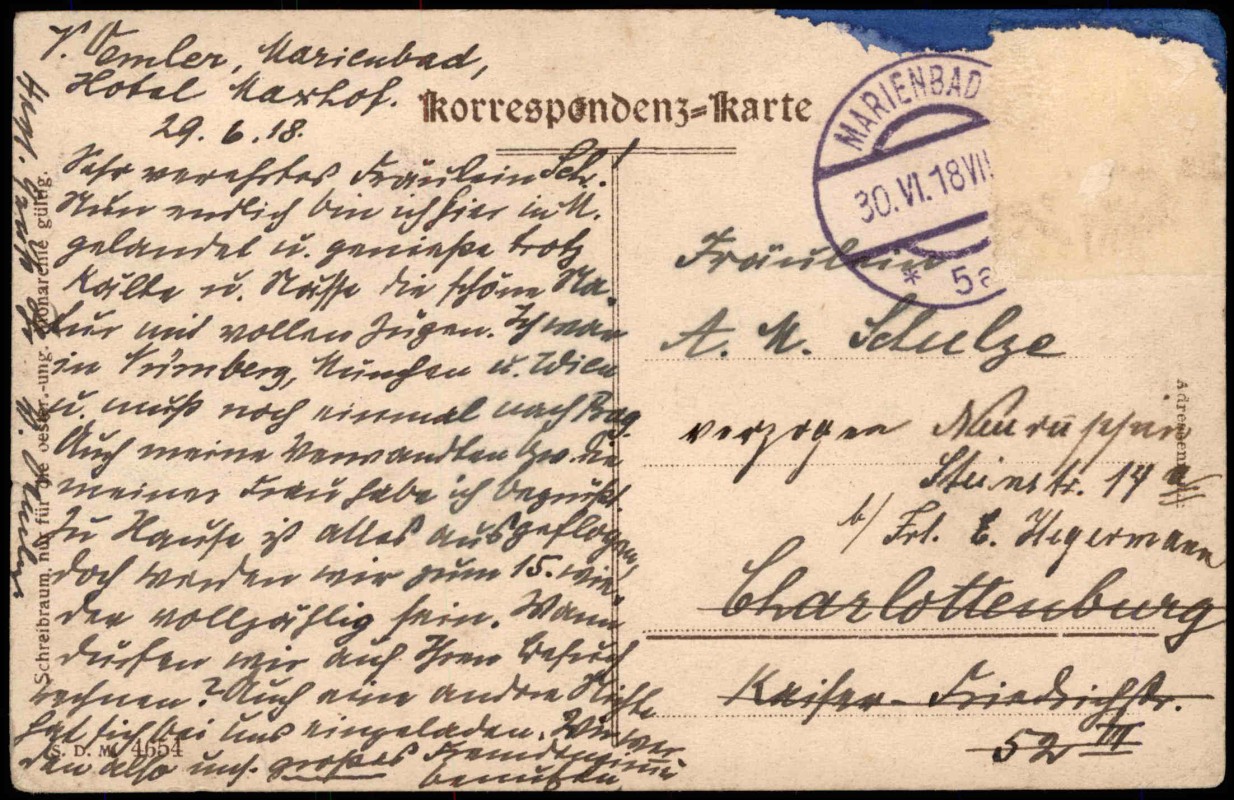 V. Oemler, Marienbad,
Hotel Maxhof.
29. 6. 18.
Korrespondenz=Karte
Sehr verehrtes Fräulein Sch.!
Nun endlich bin ich hier in M.
gelandet u. genieße trotz
Kälte u. Nässe die schöne Na-
tur mit vollen Zügen. Ich war
in Nürnberg, München u. Wien
u. muß noch einmal nach Prag.
Auch meine Verwandten bzw. die
meiner Frau habe ich begrüßt.
Zu Hause ist alles ausgeflogen,
doch werden wir zum 15. wie-
der vollzählig sein. Wann
dürfen wir auf Ihren Besuch
rechnen? Auch eine andre Nichte
hat sich bei uns eingeladen. Wir wer-
den also uns. großes Fremdenzimmer
benutzen
Herzl.
Schreibraum, nur für die oesterr.-ung. gültig.
S. D. M. 4654
MARIENBAD
30. VI. 18 VII
* 5a
Fräulein
A. M. Schulze
verzogen Neuruppin
Steinstr. 14
b/ Frl. E. Hegermann
Charlottenburg
Kaiser-Friedrichstr.
52 III